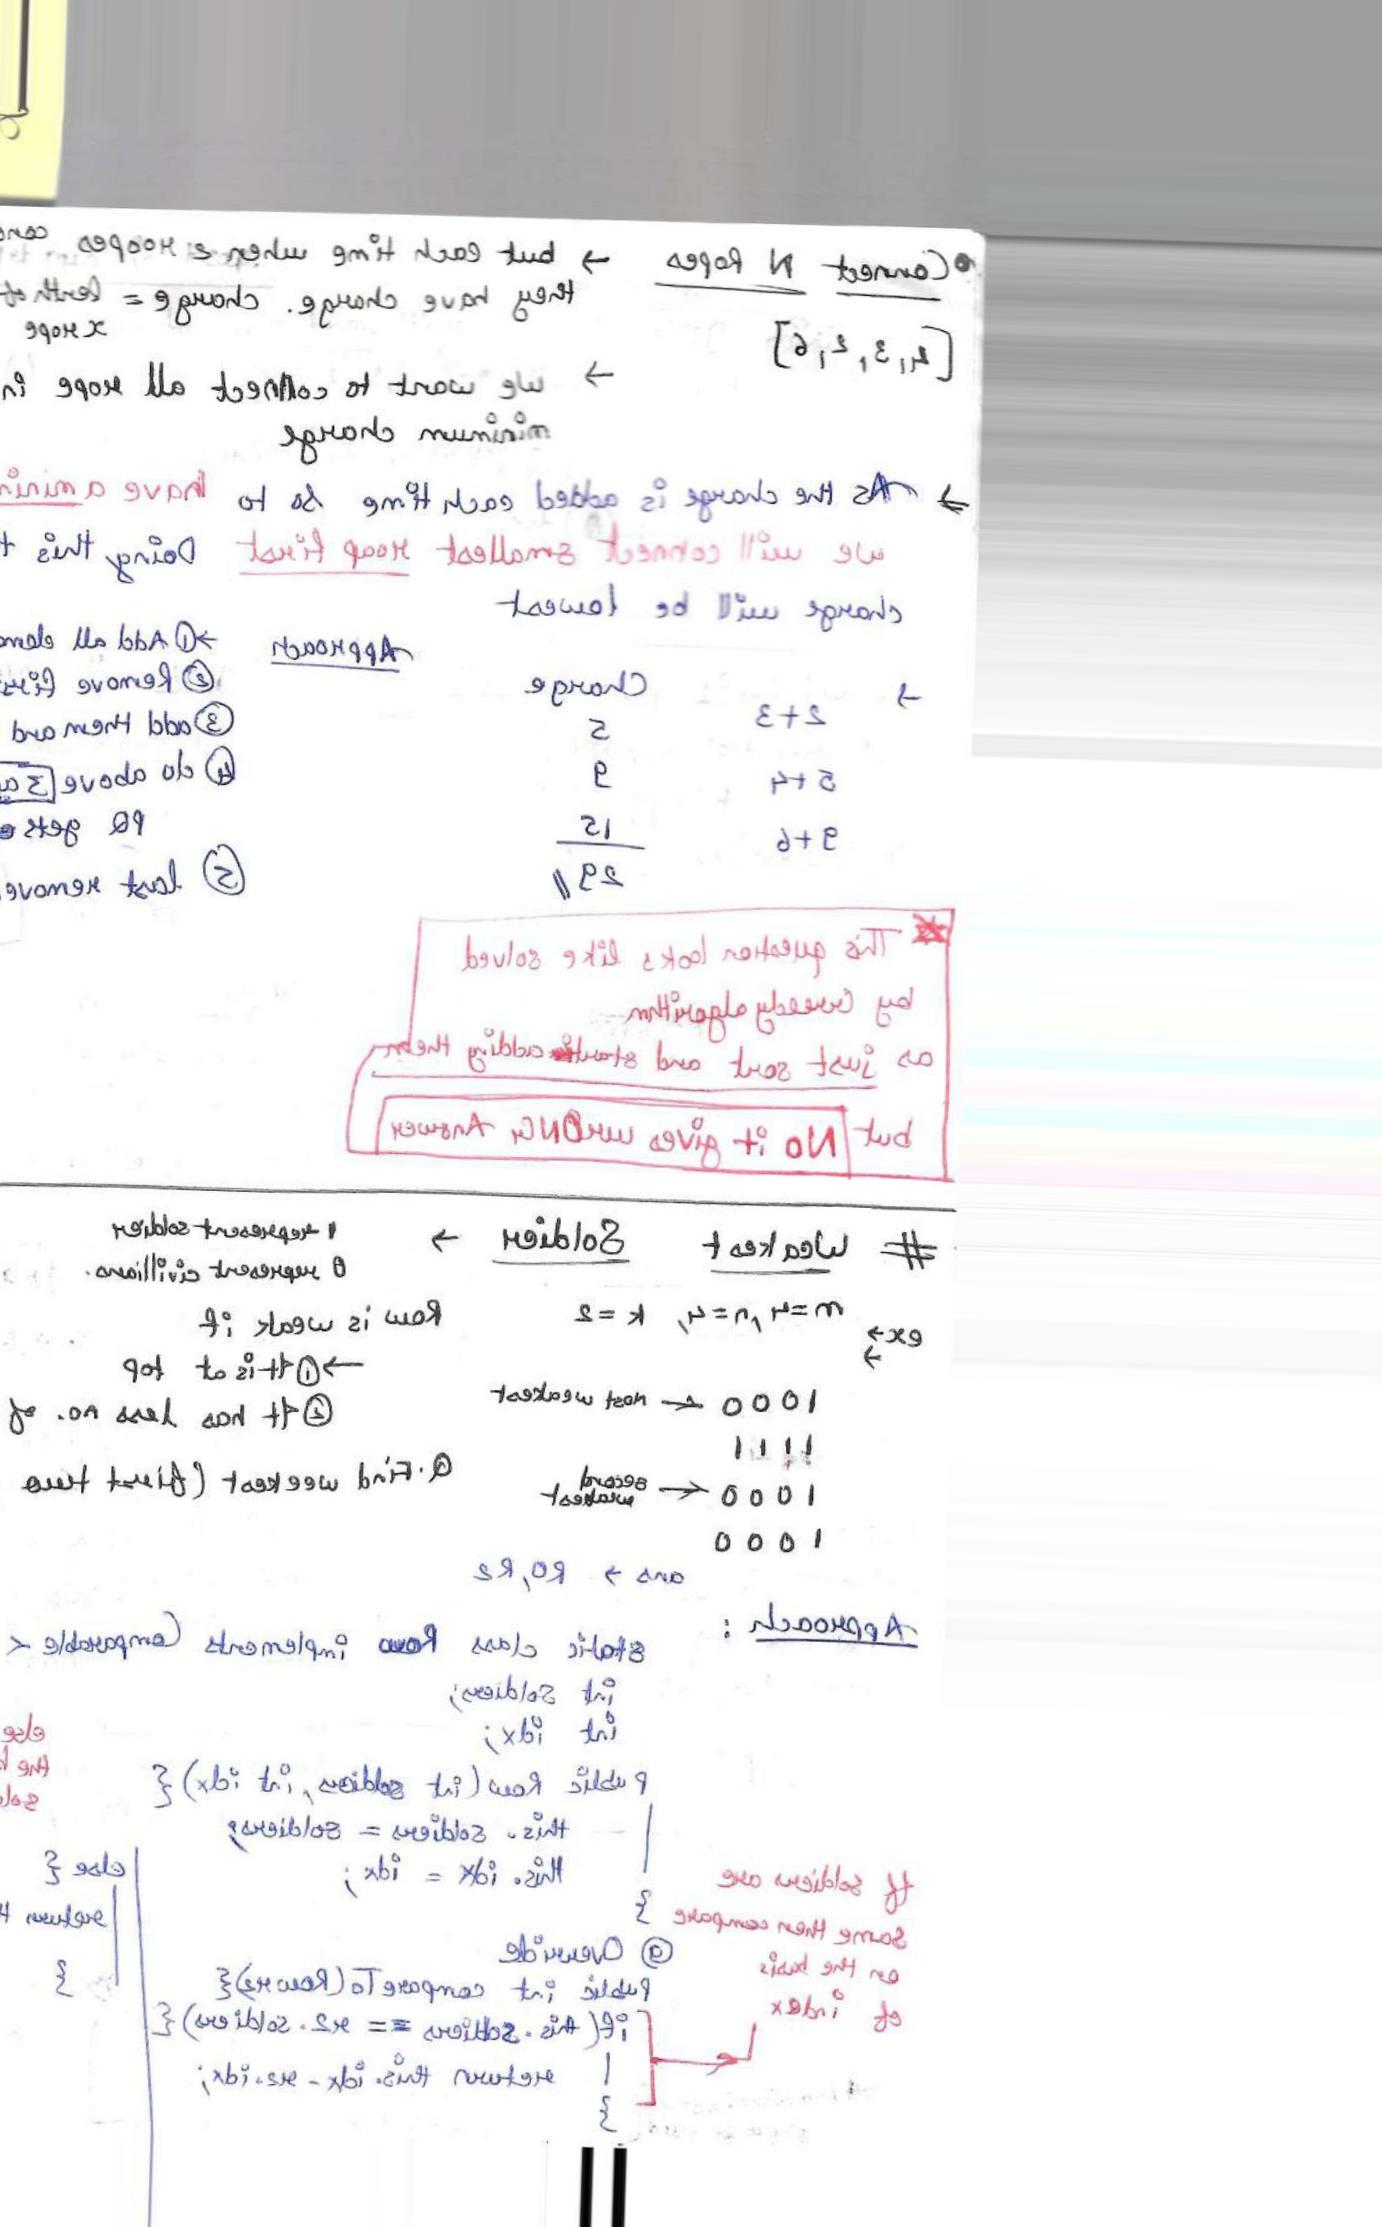 Connect N Ropes → but each time when 2 roopes
they have charge. charge = lenth of
x rope
[4, 3, 2, 6]
→ we want to connect all rope in
minimum charge
→ As the charge is added each time so to have a
we will connect smallest roap first Doing this
charge will be lowest
→ Charge
2+3 5
5+4 9
9+6 15
29 //
Approach → ① Add all
② Remove
③ add them and
④ do above 3
PQ gets
⑤ last remove
This question looks like solved
by Greedy algorithm
as just sort and start adding them
but No it gives wrONG Answer
# Weakest Soldier → 1 represent soldier
0 represent civillians.
ex → m=4, n=4, k=2
→
1 0 0 0 ← Most weakest
1 1 1 1
1 0 0 0 ← second weakest
1 0 0 0
ans → R0, R2
Row is weak if
→ ① It is at top
② It has less no. of
Q. Find weekest (first two
Approach :
static class Row implements Comparable <
int soldiers;
int idx;
Public Row (int soldiers, int idx) {
this. soldiers = soldiers;
this. idx = idx;
}
@ Override
Public int compareTo (Row r2) {
if (this. soldiers == r2. soldiers) {
return this. idx - r2. idx;
}
If soldiers are
same then compare
on the basis
of index
else {
return
}
else
the